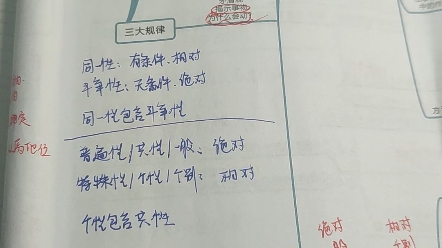 揭示事物
为什么会动
三大规律
同一性：有条件、相对
斗争性：无条件、绝对
同一性包含斗争性
普遍性/共性/一般：绝对
特殊性/个性/个别：相对
个性包含共性
绝对 相对
个别